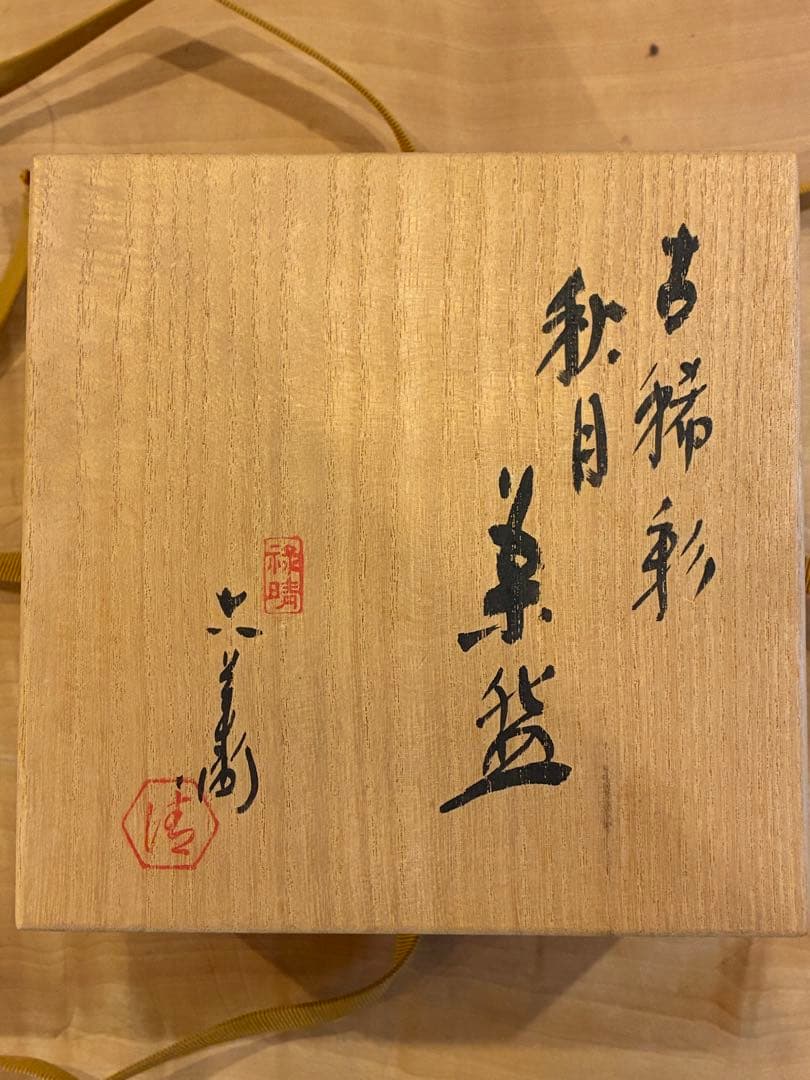 古稀彩
秋月
茶盌
禄晴
六兵衛
清